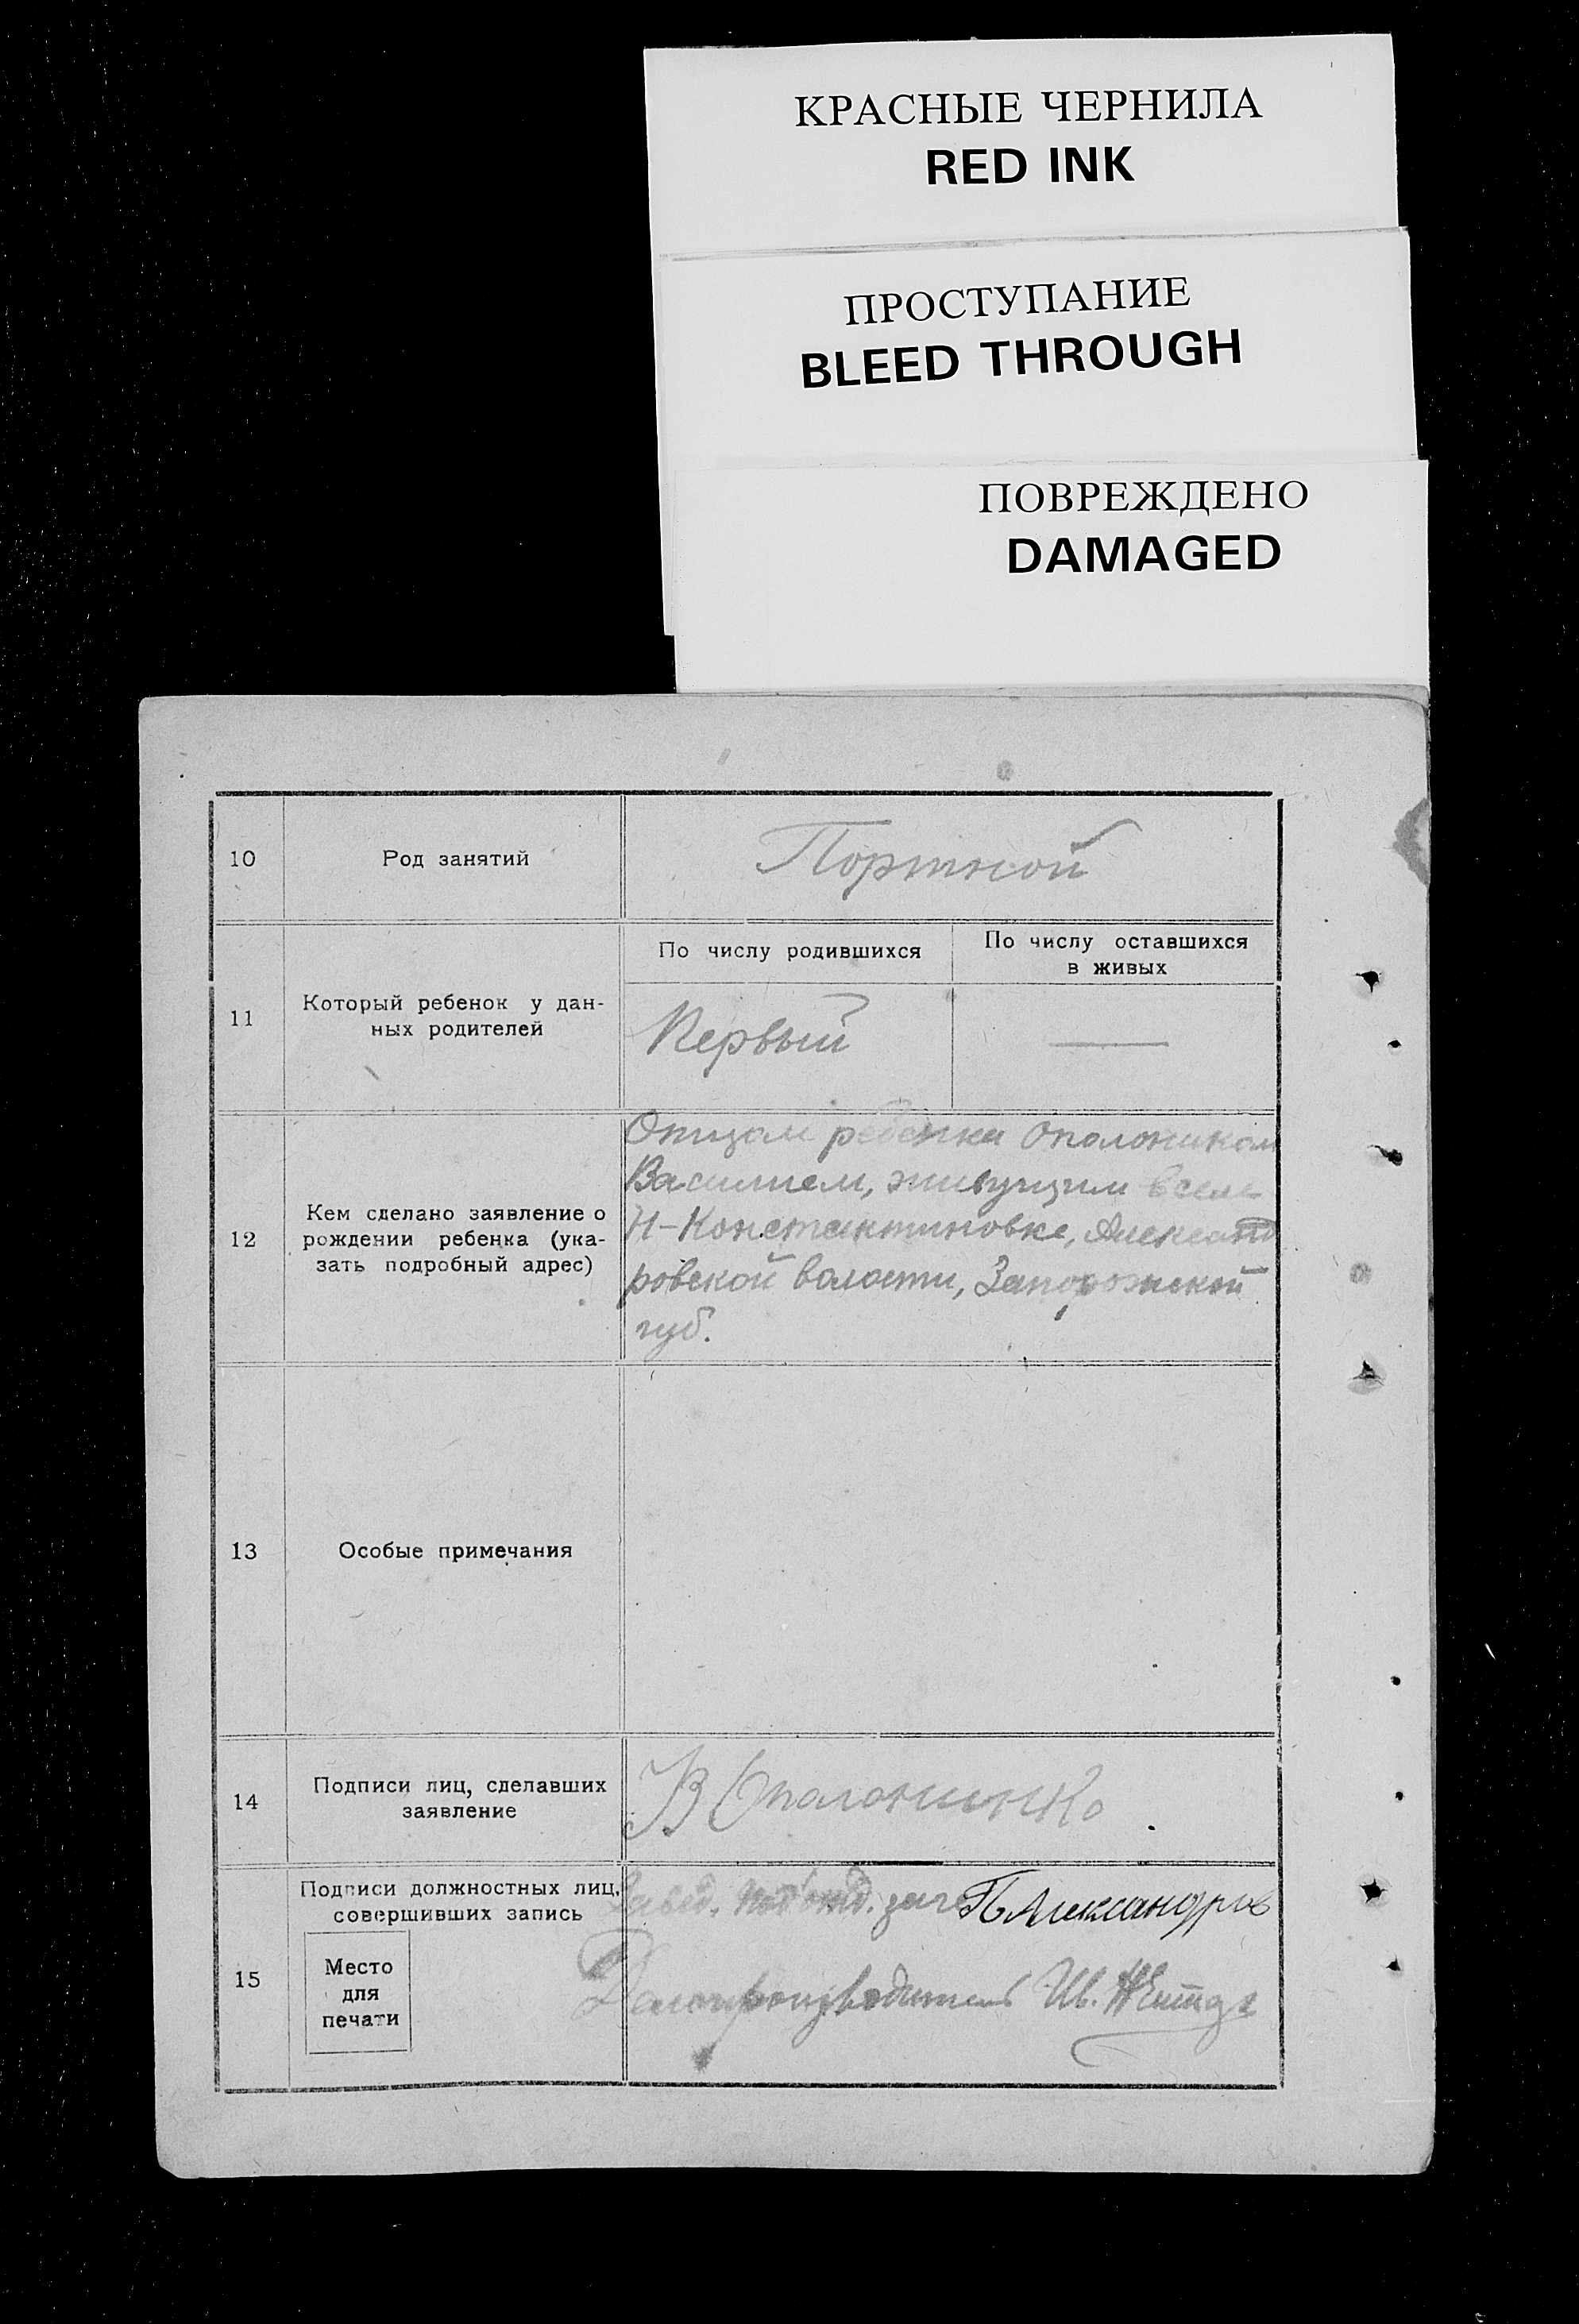 КРАСНЫЕ ЧЕРНИЛА
RED INK
ПРОСТУПАНИЕ
BLEED THROUGH
ПОВРЕЖДЕНО
DAMAGED
10 Род занятий Портной
11 Который ребенок у дан-
ных родителей
По числу родившихся
По числу оставшихся
в живых
Первый —
12 Кем сделано заявление о
рождении ребенка (ука-
зать подробный адрес)
Отцом ребенка Ополоником
Василием, живущим в селе
Н-Константиновке, Александ
ровской волости, Запорожской
губ.
13 Особые примечания
14 Подписи лиц, сделавших
заявление
В Ополонинко
15 Подписи должностных лиц,
совершивших запись
Место
для
печати
Завед. подотд. загс Александров
Делопроизводитель Ив.